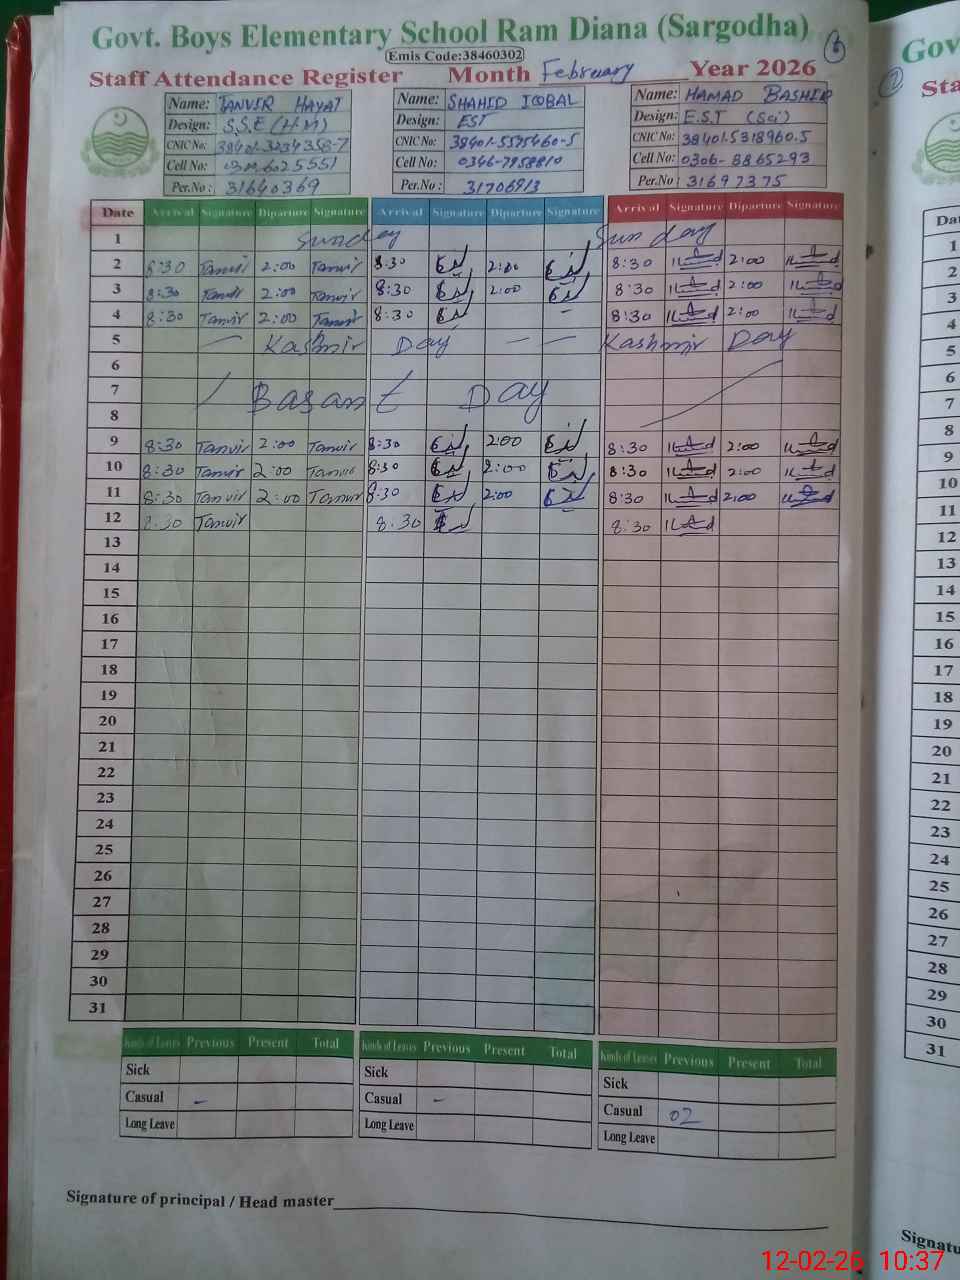 Govt. Boys Elementary School Ram Diana (Sargodha)
Emis Code:38460302
Staff Attendance Register Month February Year 2026
Name: TANVIR HAYAT
Design: S.S.E (H.M)
CNIC No:
Cell No:
Per.No : 31640369
Name: SHAHID IQBAL
Design: EST
CNIC No: 38401-5595460-5
Cell No: 0346-7958810
Per.No : 31706913
Name: HAMAD BASHIR
Design: E.S.T (Sci)
CNIC No: 38401-5318960.5
Cell No: 0306-8865293
Per.No : 31697375
Date Arrival Signature Diparture Signature Arrival Signature Diparture Signature Arrival Signature Diparture Signature
1 Sunday Sunday
2 8:30 Tanvir 2:00 Tanvir 8:30 2:00 8:30 2:00
3 8:30 Tanvir 2:00 Tanvir 8:30 2:00 8:30 2:00
4 8:30 Tanvir 2:00 Tanvir 8:30 - 8:30 2:00
5 — Kashmir Day — — Kashmir Day
6
7 Basant Day
8
9 8:30 Tanvir 2:00 Tanvir 8:30 2:00 8:30 2:00
10 8:30 Tanvir 2:00 Tanvir 8:30 2:00 8:30 2:00
11 8:30 Tanvir 2:00 Tanvir 8:30 2:00 8:30 2:00
12 8:30 Tanvir 8:30 8:30
13
14
15
16
17
18
19
20
21
22
23
24
25
26
27
28
29
30
31
Kinds of Leaves Previous Present Total Kinds of Leaves Previous Present Total Kinds of Leaves Previous Present Total
Sick Sick Sick
Casual - Casual - Casual 02
Long Leave Long Leave Long Leave
Signature of principal / Head master
Gov
Sta
Dat
1
2
3
4
5
6
7
8
9
10
11
12
13
14
15
16
17
18
19
20
21
22
23
24
25
26
27
28
29
30
31
Signatu
12-02-26 10:37